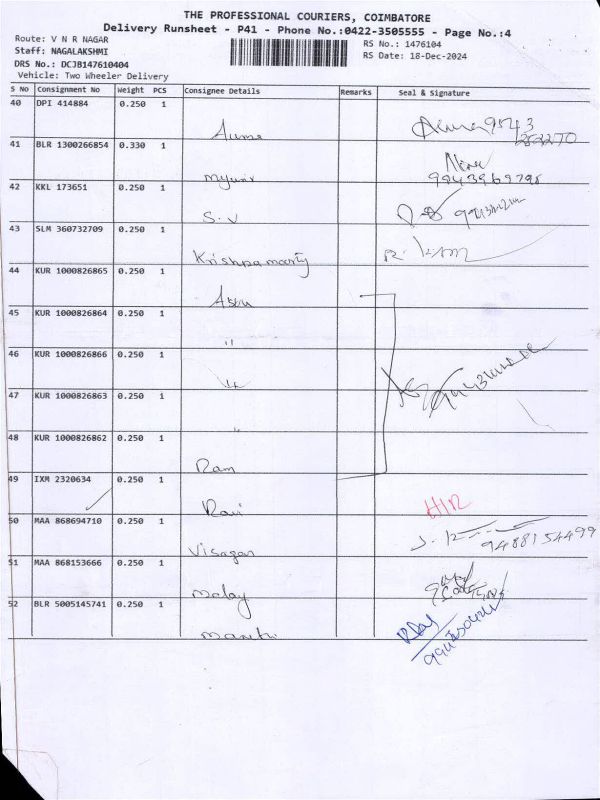 THE PROFESSIONAL COURIERS, COIMBATORE
Delivery Runsheet - P41 - Phone No.:0422-3505555 - Page No.:4
Route: V N R NAGAR
Staff: NAGALAKSHMI
DRS No.: DCJB147610404
Vehicle: Two Wheeler Delivery
RS No.: 1476104
RS Date: 18-Dec-2024
S No Consignment No Weight PCS Consignee Details Remarks Seal & Signature
40 DPI 414884 0.250 1
41 BLR 1300266854 0.330 1
42 KKL 173651 0.250 1 S.V
43 SLM 360732709 0.250 1 Krishnamoorty
44 KUR 1000826865 0.250 1
45 KUR 1000826864 0.250 1 "
46 KUR 1000826866 0.250 1
47 KUR 1000826863 0.250 1 "
48 KUR 1000826862 0.250 1 Ram
49 IXM 2320634 0.250 1 Ravi
50 MAA 868694710 0.250 1 Visagan 9488154499
51 MAA 868153666 0.250 1 malay
52 BLR 5005145741 0.250 1